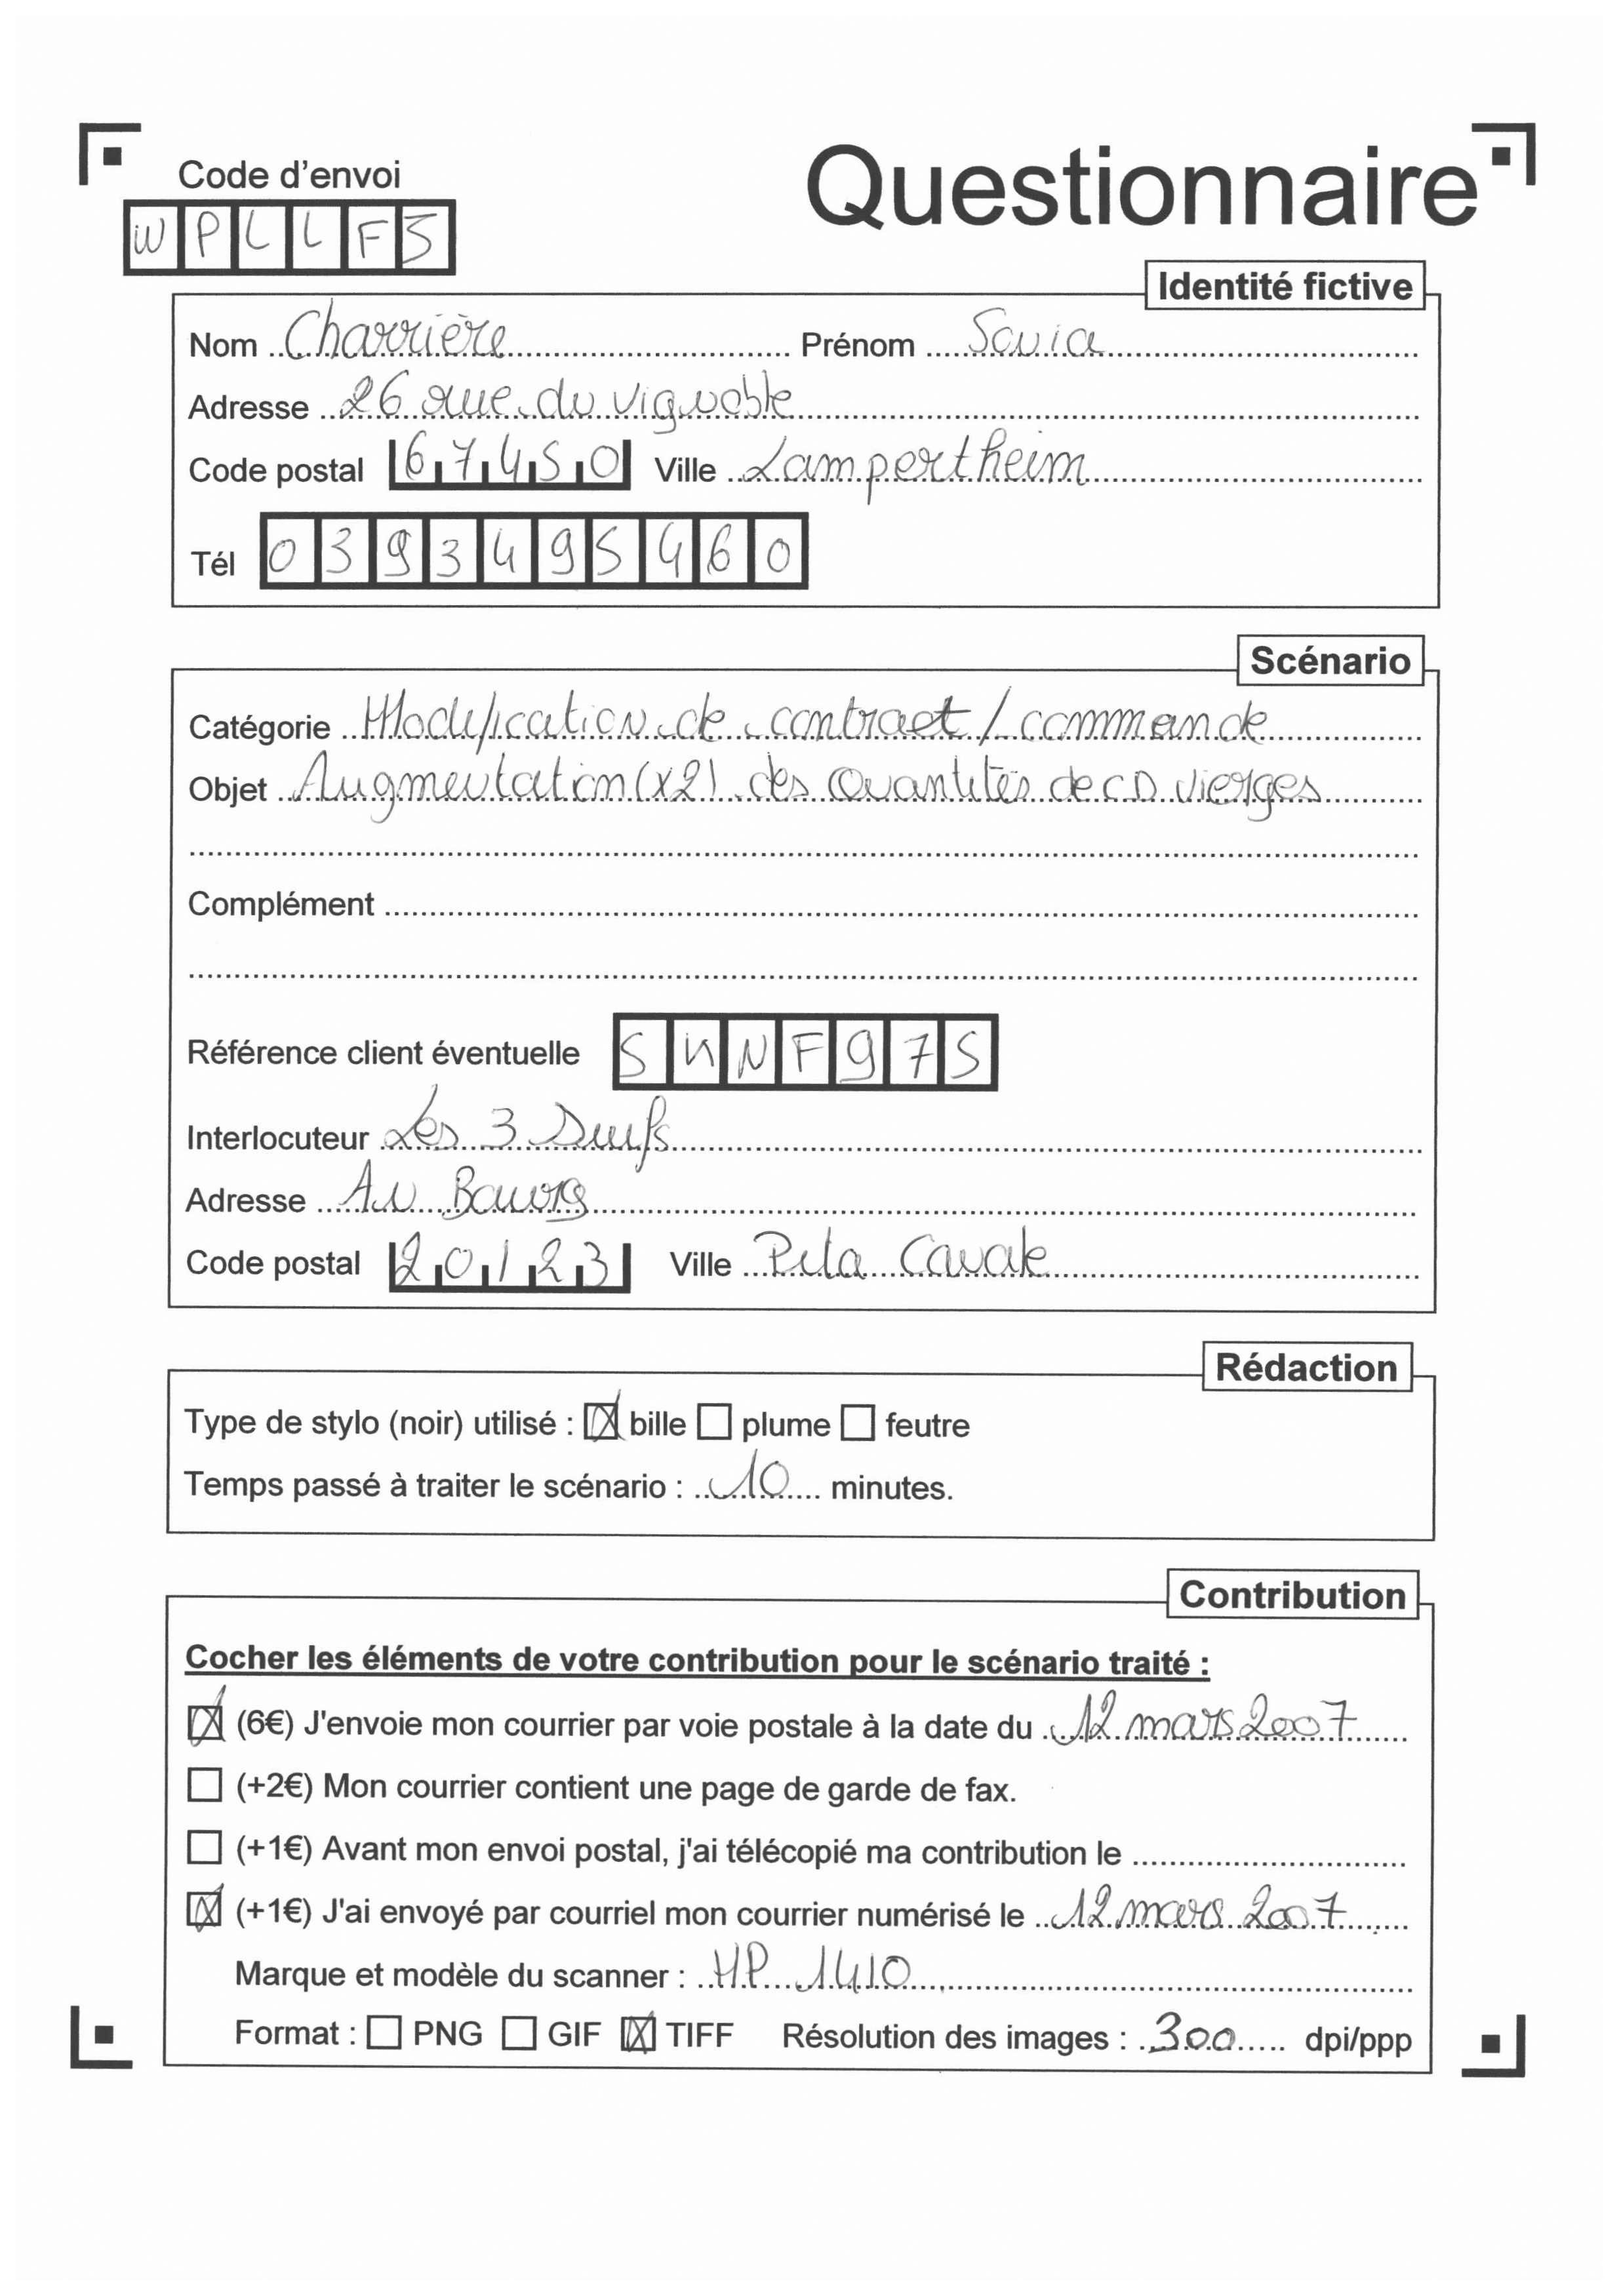 Code d'envoi
Questionnaire
W P L L F 5
Identité fictive
Nom Charrière Prénom Sonia
Adresse 26 rue du vignoble
Code postal 67450 Ville Lampertheim
Tél 0393495460
Scénario
Catégorie Modification de contract / commande
Objet Augmentation (x2) des Quantités de CD vierges
Complément
Référence client éventuelle S K N F 9 7 5
Interlocuteur Les 3
Adresse Au Bourg
Code postal 20123 Ville Pila Canale
Rédaction
Type de stylo (noir) utilisé : bille plume feutre
Temps passé à traiter le scénario : 10 minutes.
Contribution
Cocher les éléments de votre contribution pour le scénario traité :
(6€) J'envoie mon courrier par voie postale à la date du 12 mars 2007
(+2€) Mon courrier contient une page de garde de fax.
(+1€) Avant mon envoi postal, j'ai télécopié ma contribution le
(+1€) J'ai envoyé par courriel mon courrier numérisé le 12 mars 2007
Marque et modèle du scanner : HP 1410
Format : PNG GIF TIFF Résolution des images : 300 dpi/ppp